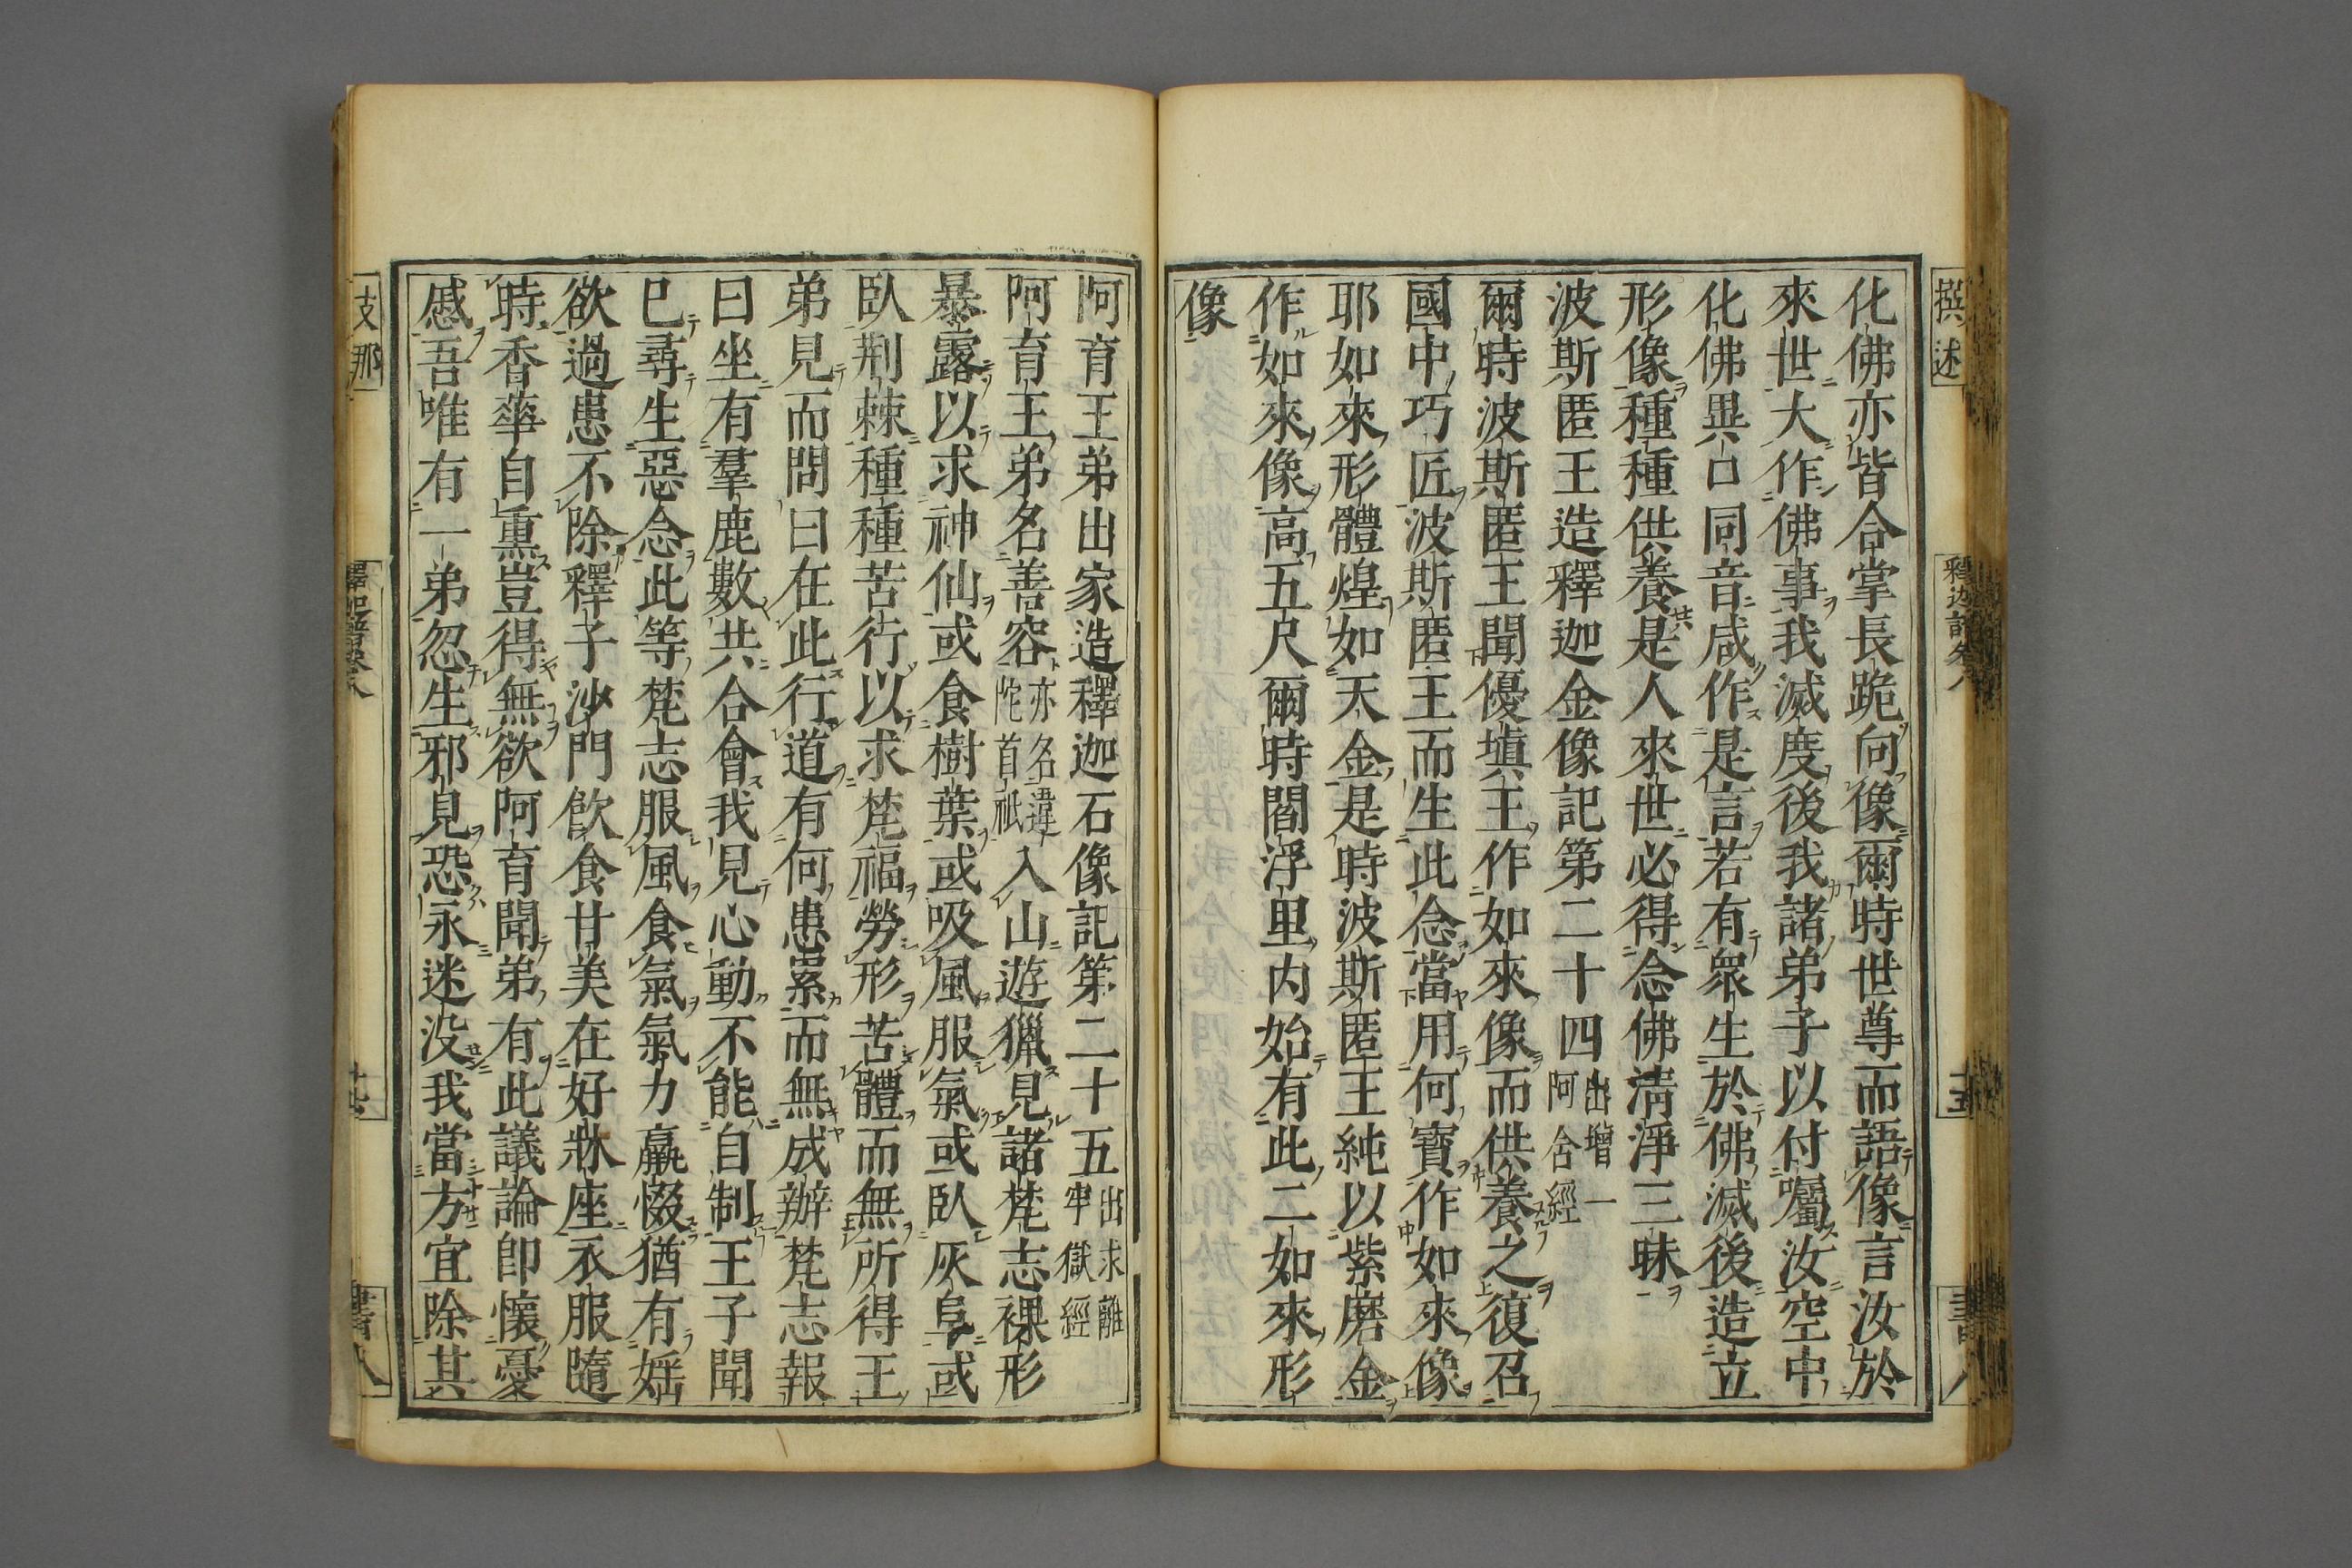 撰述
釋迦譜卷八
十五
書八
化佛亦皆合掌長跪向像爾時世尊而語像言汝於
來世大作佛事我滅度後我諸弟子以付囑汝空中
化佛異口同音咸作是言若有衆生於佛滅後造立
形像種種供養是人來世必得念佛清淨三昧
波斯匿王造釋迦金像記第二十四出增一阿含經
爾時波斯匿王聞優塡王作如來像而供養之復召
國中巧匠波斯匿王而生此念當用何寶作如來像
耶如來形體煌如天金是時波斯匿王純以紫磨金
作如來像高五尺爾時閻浮里内始有此二如來形
像
阿育王弟出家造釋迦石像記第二十五出求離牢獄經
阿育王弟名善容亦名違陀首祇入山遊獵見諸梵志裸形
暴露以求神仙或食樹葉或吸風服氣或臥灰阜或
臥荆棘種種苦行以求梵福勞形苦體而無所得王
弟見而問曰在此行道有何患累而無成辦梵志報
曰坐有羣鹿數共合會我見心動不能自制王子聞
已尋生惡念此等梵志服風食氣氣力羸惙猶有婬
欲過患不除釋子沙門飲食甘美在好牀座衣服隨
時香華自熏豈得無欲阿育聞弟有此議論即懷憂
慼吾唯有一弟忽生邪見恐永迷没我當方宜除其
支那